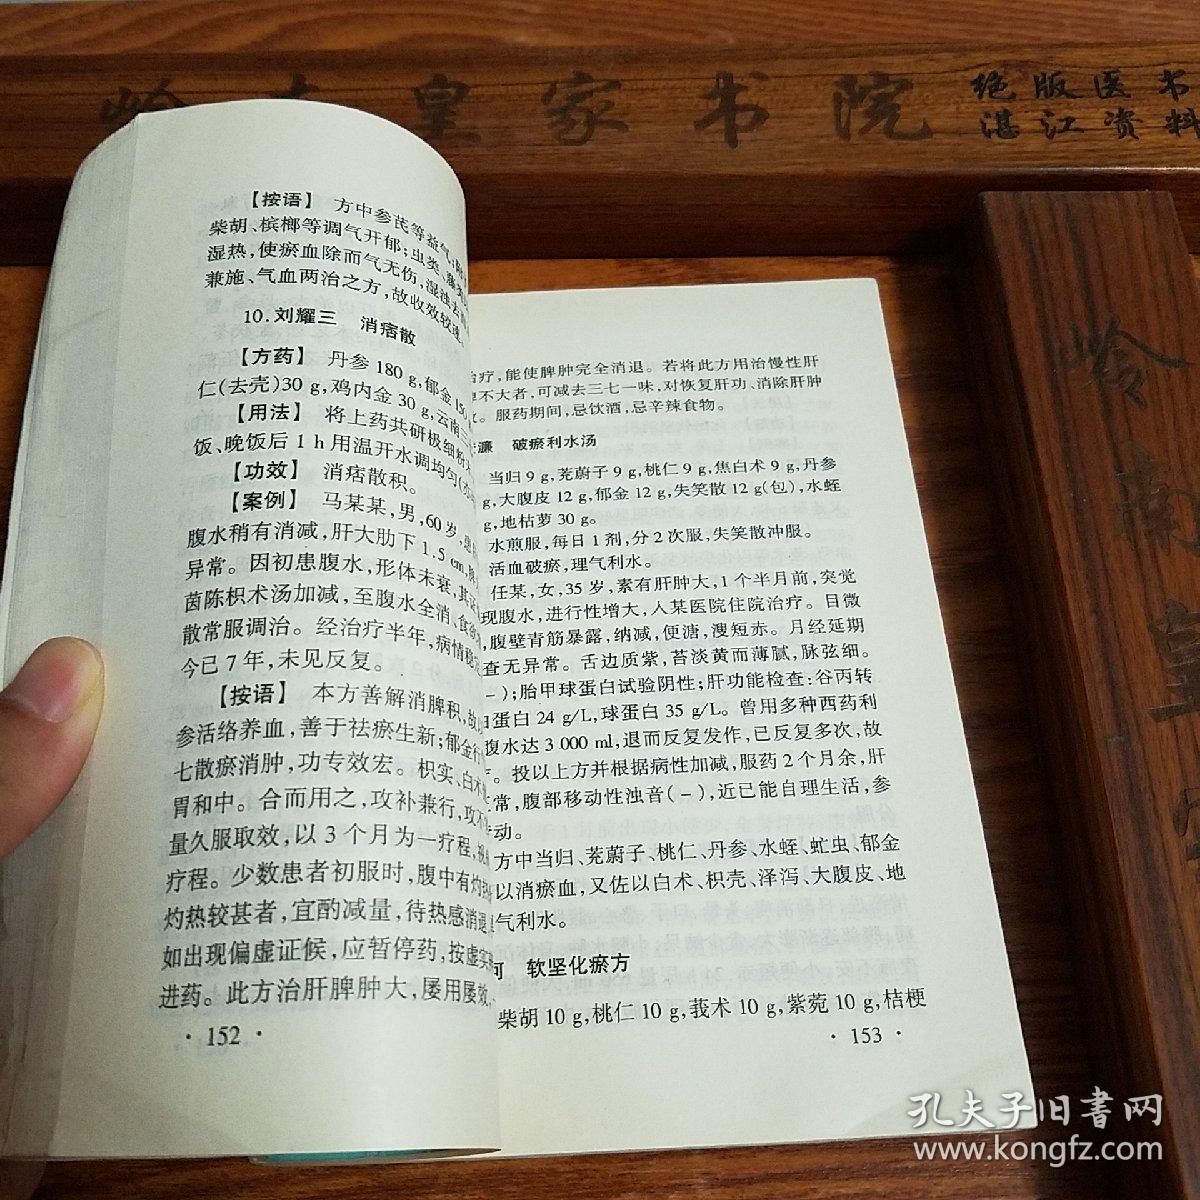 岭南皇家书院
绝版医书
湛江资料
【按语】 方中参芪等益气
柴胡、槟榔等调气开郁;虫类、藤
湿热,使瘀血除而气无伤,湿浊去
兼施、气血两治之方,故收效较速。
10.刘耀三 消痞散
【方药】 丹参 180 g,郁金 1
仁(去壳)30 g,鸡内金 30 g,云南三
【用法】 将上药共研极细粉
饭、晚饭后 1 h 用温开水调均匀
【功效】 消痞散积。
【案例】 马某某,男,60 岁,患
腹水稍有消减,肝大肋下 1.5 cm,
异常。因初患腹水,形体未衰,其
茵陈枳术汤加减,至腹水全消,食
散常服调治。经治疗半年,病情稳
今已 7 年,未见反复。
【按语】 本方善解消脾积,故
参活络养血,善于祛瘀生新;郁金行
七散瘀消肿,功专效宏。枳实、白术
胃和中。合而用之,攻补兼行,攻不
量久服取效,以 3 个月为一疗程,视
疗程。少数患者初服时,腹中有灼热
灼热较甚者,宜酌减量,待热感消退
如出现偏虚证候,应暂停药,按虚实
进药。此方治肝脾肿大,屡用屡效,
· 152 ·
治疗,能使脾肿完全消退。若将此方用治慢性肝
不大者,可减去三七一味,对恢复肝功、消除肝肿
。服药期间,忌饮酒,忌辛辣食物。
濂 破瘀利水汤
当归 9 g,茺蔚子 9 g,桃仁 9 g,焦白术 9 g,丹参
g,大腹皮 12 g,郁金 12 g,失笑散 12 g(包),水蛭
g,地枯萝 30 g。
水煎服,每日 1 剂,分 2 次服,失笑散冲服。
活血破瘀,理气利水。
任某,女,35 岁,素有肝肿大,1 个半月前,突觉
现腹水,进行性增大,入某医院住院治疗。目微
,腹壁青筋暴露,纳减,便溏,溲短赤。月经延期
查无异常。舌边质紫,苔淡黄而薄腻,脉弦细。
-);胎甲球蛋白试验阴性;肝功能检查:谷丙转
白蛋白 24 g/L,球蛋白 35 g/L。曾用多种西药利
腹水达 3 000 ml,退而反复发作,已反复多次,故
。投以上方并根据病性加减,服药 2 个月余,肝
常,腹部移动性浊音(-),近已能自理生活,参
动。
方中当归、茺蔚子、桃仁、丹参、水蛭、虻虫、郁金
以消瘀血,又佐以白术、枳壳、泽泻、大腹皮、地
气利水。
河 软坚化瘀方
柴胡 10 g,桃仁 10 g,莪术 10 g,紫菀 10 g,桔梗
· 153 ·
岭南皇家
孔夫子旧书网
www.kongfz.com